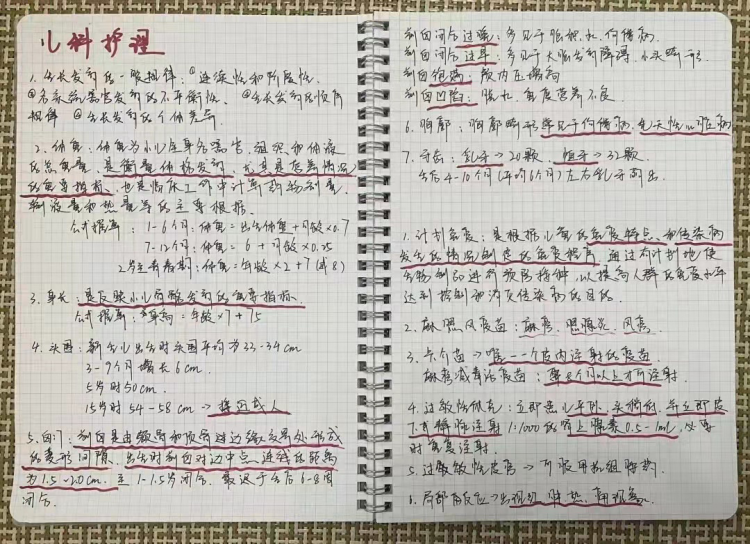 儿科护理
1. 生长发育的一般规律：①连续性和阶段性.
②各系统器官发育的不平衡性. ③生长发育的顺序
规律 ④生长发育的个体差异
2. 体重：体重为小儿全身各器官、组织和体液
的总重量，是衡量体格发育，尤其是营养情况
的重要指标，也是临床工作中计算药物剂量、
输液量和热量等的主要根据.
公式推算：1-6个月：体重=出生体重+月龄×0.7
7-12个月：体重=6+月龄×0.25
2岁至青春期：体重=年龄×2+7(或8)
3. 身长：是反映小儿骨骼发育的重要指标.
公式推算：身高=年龄×7+75
4. 头围：新生儿出生时头围平均为33-34cm
3-9个月增长6cm.
5岁时50cm.
15岁时54-58cm→接近成人
5. 囟门：前囟是由额骨和顶骨过边缘交界处形成
的菱形间隙，出生时前囟对边中点连线的距离
为1.5-2.0cm. 至1-1.5岁闭合. 最迟于生后6-8周
闭合.
前囟闭合过晚：多见于脑积水、佝偻病.
前囟闭合过早：多见于大脑发育障碍、小头畸形
前囟饱满：颅内压增高
前囟凹陷：脱水、重度营养不良.
6. 胸廓：胸廓畸形常见于佝偻病、先天性心脏病
7. 牙齿：乳牙→20颗 恒牙→32颗
生后4-10个月(平均6个月)左右乳牙萌出.
1. 计划免疫：是根据儿童的免疫特点和传染病
发生的情况制定的免疫程序，通过有计划地使
生物制品进行预防接种，以提高人群的免疫水平
达到控制和消灭传染病的目的.
2. 麻腮风疫苗：麻疹、腮腺炎、风疹.
3. 卡介苗→唯一一个皮内注射的疫苗
麻疹减毒活疫苗：要8个月以上才可注射.
4. 过敏性休克：立即患儿平卧、头稍低，并立即皮
下或静脉注射1:1000的肾上腺素0.5-1ml，必要
时重复注射.
5. 过敏性皮疹→可服用抗组胺药
6. 局部的反应→出现红、肿、热、痛现象.